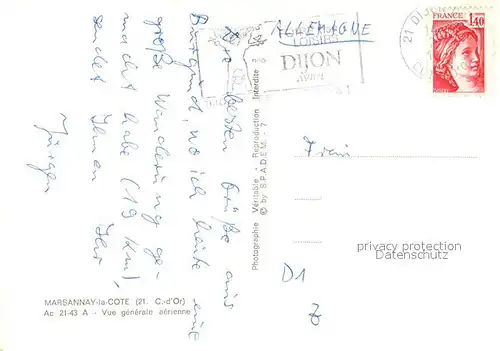 ALLEMAGNE
LOISIRS
DIJON
21 DIJON
FRANCE
1,40
Die besten Grüße aus
Burgund, wo ich heute eine
große Wanderung ge-
macht habe (19 km),
sendet Ihnen Ihr
Jürgen
Photographie Véritable - Reproduction Interdite
© by S.P.A.D.E.M. - 7
privacy protection
Datenschutz
D1
MARSANNAY-la-COTE (21. C.-d'Or)
Ac 21-43 A - Vue générale aérienne